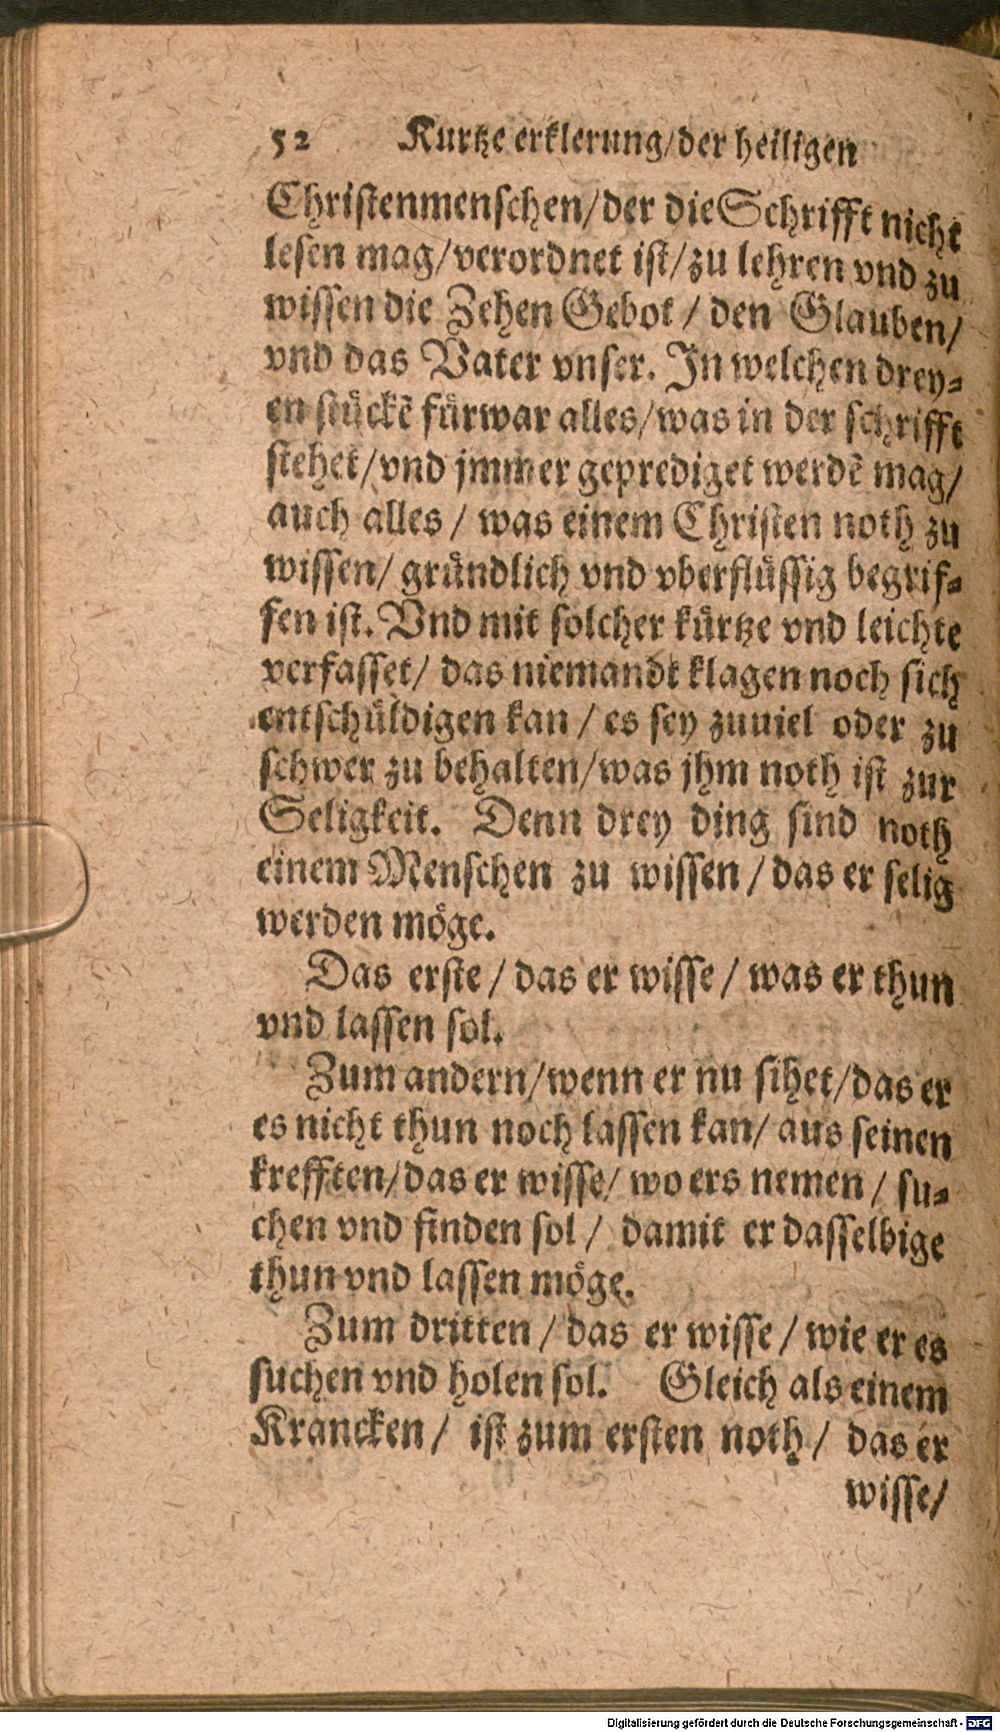 52 Kurtze erklerung/der heiligen
Christenmenschen/der die Schrifft nicht
lesen mag/verordnet ist/zu lehren vnd zu
wissen die Zehen Gebot / den Glauben/
vnd das Vater vnser. In welchen drey-
en stückẽ fürwar alles/was in der schrifft
stehet/vnd jmmer geprediget werdẽ mag/
auch alles / was einem Christen noth zu
wissen/ gründlich vnd vberflüssig begrif-
fen ist. Vnd mit solcher kürtze vnd leichte
verfasset/ das niemandt klagen noch sich
entschüldigen kan / es sey zuuiel oder zu
schwer zu behalten/was jhm noth ist zur
Seligkeit. Denn drey ding sind noth
einem Menschen zu wissen / das er selig
werden möge.
Das erste / das er wisse / was er thun
vnd lassen sol.
Zum andern/wenn er nu sihet/das er
es nicht thun noch lassen kan/ aus seinen
krefften/das er wisse/ wo ers nemen / su-
chen vnd finden sol / damit er dasselbige
thun vnd lassen möge.
Zum dritten / das er wisse / wie er es
suchen vnd holen sol. Gleich als einem
Krancken / ist zum ersten noth / das er
wisse/
Digitalisierung gefördert durch die Deutsche Forschungsgemeinschaft - DFG